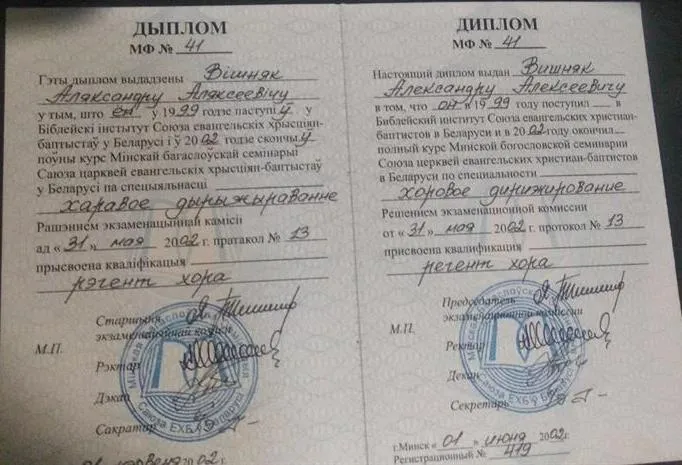 ДЫПЛОМ
МФ № 41
Гэты дыплом выдадзены Вішняк
Аляксандру Аляксеевічу
у тым, што ён у 1999 годзе паступіў у
Біблейскі інстытут Саюза евангельскіх хрысціян-
баптыстаў у Беларусі і ў 2002 годзе скончыў
поўны курс Мінскай багаслоўскай семінарыі
Саюза царквей евангельскіх хрысціян-баптыстаў
у Беларусі па спецыяльнасці
харавое дырыжыраванне
Рашэннем экзаменацыйнай камісіі
ад «31» мая 2002 г. пратакол № 13
прысвоена кваліфікацыя
рэгент хора
Старшыня
экзаменацыйнай камісіі
М.П.
Рэктар
Дэкан
Сакратар
2002 г.
Мінская багаслоўская семінарыя
Саюза ЕХБ у Беларусі
ДИПЛОМ
МФ № 41
Настоящий диплом выдан Вишняк
Александру Алексеевичу
в том, что он в 1999 году поступил в
Библейский институт Союза евангельских христиан-
баптистов в Беларуси и в 2002 году окончил
полный курс Минской богословской семинарии
Союза церквей евангельских христиан-баптистов
в Беларуси по специальности
хоровое дирижирование
Решением экзаменационной комиссии
от «31» мая 2002 г. протокол № 13
присвоена квалификация
регент хора
Председатель
экзаменационной комиссии
М.П.
Ректор
Декан
Секретарь
Саюза ЕХБ у Беларусі
г.Минск «01» июня 2002 г.
Регистрационный № 419